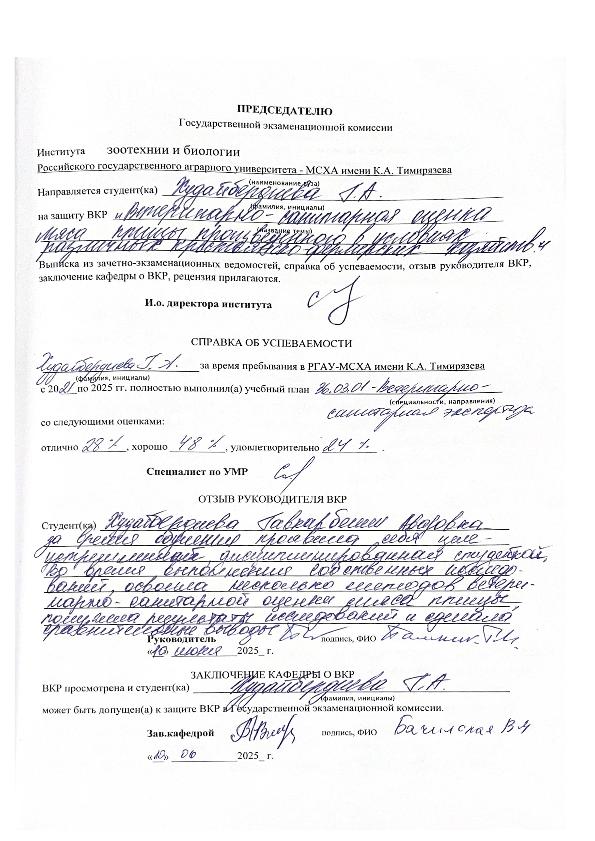 ПРЕДСЕДАТЕЛЮ
Государственной экзаменационной комиссии
Института зоотехнии и биологии
Российского государственного аграрного университета - МСХА имени К.А. Тимирязева
(наименование вуза)
Направляется студент(ка) Худайбердиева Г.А.
(фамилия, инициалы)
на защиту ВКР «Ветеринарно-санитарная оценка
(название темы)
мяса птицы произведенного в условиях
различных крестьянско-фермерских хозяйств»
Выписка из зачетно-экзаменационных ведомостей, справка об успеваемости, отзыв руководителя ВКР,
заключение кафедры о ВКР, рецензия прилагаются.
И.о. директора института
СПРАВКА ОБ УСПЕВАЕМОСТИ
Худайбердиева Г.А. за время пребывания в РГАУ-МСХА имени К.А. Тимирязева
(фамилия, инициалы)
с 2021 по 2025 гг. полностью выполнил(а) учебный план 36.03.01 - Ветеринарно-
(специальности, направления)
санитарная экспертиза
со следующими оценками:
отлично 28 %, хорошо 48 %, удовлетворительно 24 %.
Специалист по УМР
ОТЗЫВ РУКОВОДИТЕЛЯ ВКР
Студент(ка) Худайбердиева
за время обучения проявила себя целе-
устремленной дисциплинированной студенткой,
во время выполнения собственных исследо-
ваний, освоила несколько методов ветери-
нарно-санитарной оценки мяса птицы
получила результаты исследований и сделала
сравнительные выводы
Руководитель подпись, ФИО
«10» июня 2025_ г.
ЗАКЛЮЧЕНИЕ КАФЕДРЫ О ВКР
ВКР просмотрена и студент(ка) Худайбердиева Г.А.
(фамилия, инициалы)
может быть допущен(а) к защите ВКР в Государственной экзаменационной комиссии.
Зав.кафедрой подпись, ФИО
«10» 06 2025_ г.